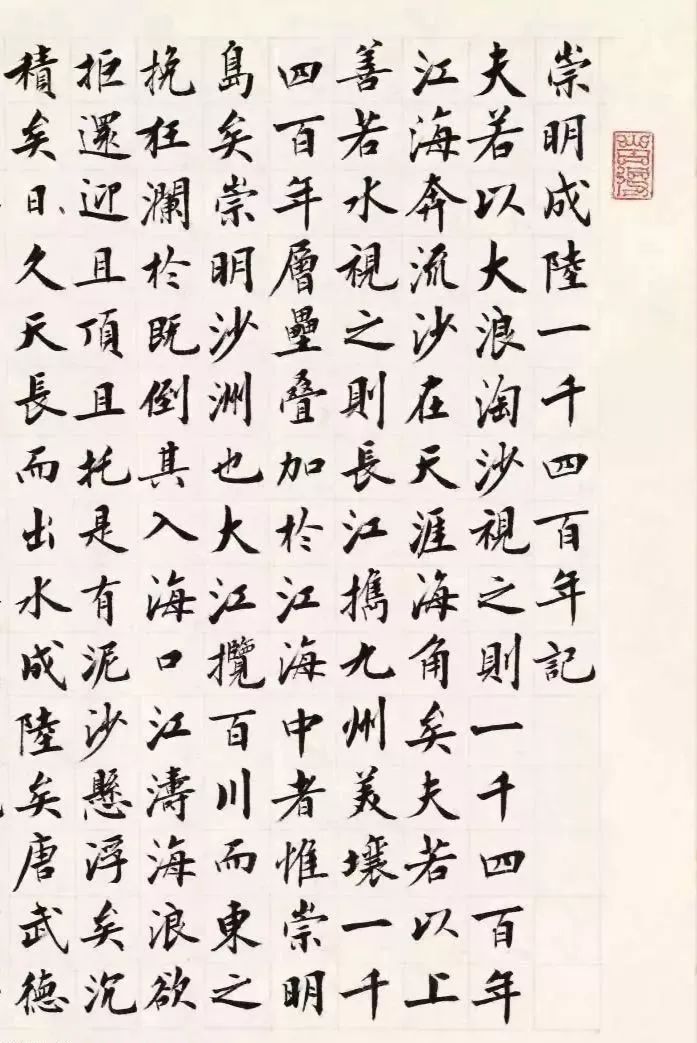 崇明成陸一千四百年記
夫若以大浪淘沙視之則一千四百年
江海奔流沙在天涯海角矣夫若以上
善若水視之則長江攜九州美壤一千
四百年層壘叠加於江海中者惟崇明
島矣崇明沙洲也大江攬百川而東之
挽狂瀾於既倒其入海口江濤海浪欲
拒還迎且頂且托是有泥沙懸浮矣沉
積矣日久天長而出水成陸矣唐武德